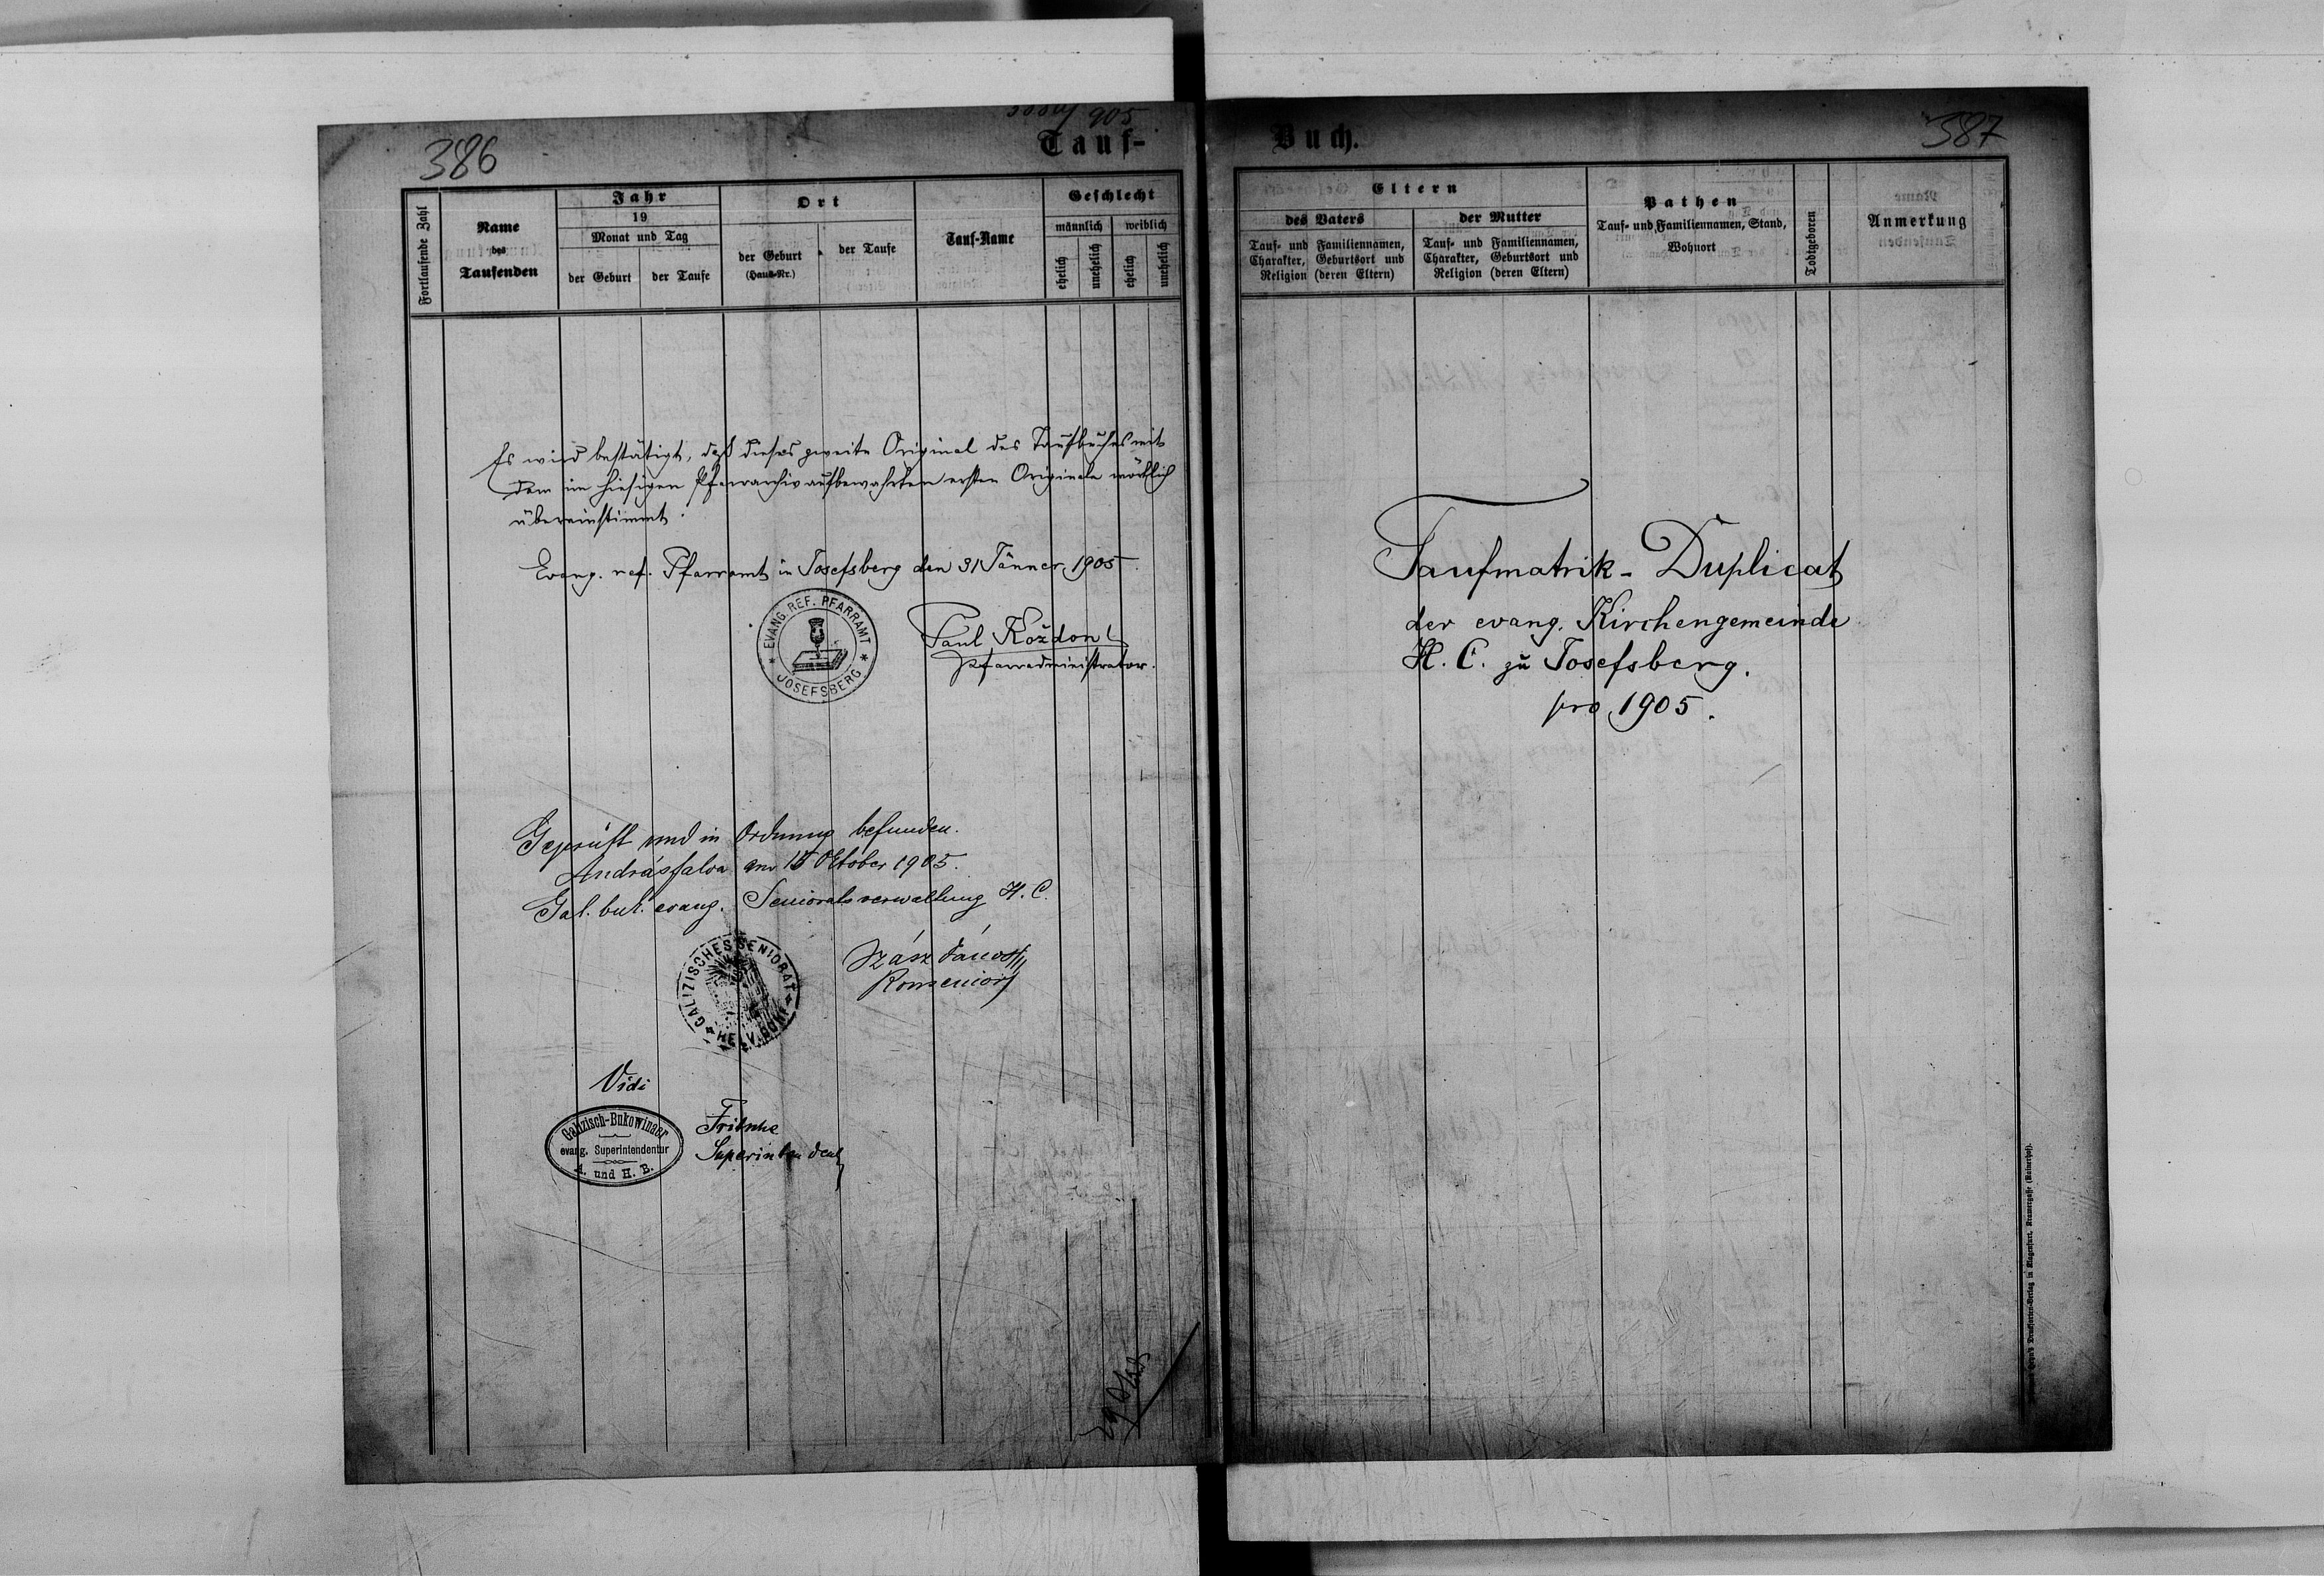 386
905
Tauf-
Fortlaufende Zahl
Name
des
Taufenden
Jahr
19
Monat und Tag
der Geburt
der Taufe
Ort
der Geburt
(Haus-Nr.)
der Taufe
Tauf-Name
Geschlecht
männlich
weiblich
ehelich
unehelich
ehelich
unehelich
Es wird bestätigt, daß dieses zweite Original des Taufbuches mit
dem im hiesigen Pfarrarchiv aufbewahrten ersten Originale wörtlich
übereinstimmt.
Evang. ref. Pfarramt in Josefsberg den 31 Jänner 1905.
EVANG. REF. PFARRAMT
* JOSEFSBERG *
Paul Koždon
Pfarradministrator.
Geprüft und in Ordnung befunden.
Andrásfalva am 15 Oktober 1905.
Gal. buk. evang. Senioratsverwaltung H. C.
GALIZISCHES SENIORAT
HELV. CONF.
Szász János
Konsenior
Vidi
Galizisch-Bukowinaer
evang. Superintendentur
A. und H. B.
Fritsche
Superintendent
387
Buch.
Eltern
des Vaters
Tauf- und Familiennamen,
Charakter, Geburtsort und
Religion (deren Eltern)
der Mutter
Tauf- und Familiennamen,
Charakter, Geburtsort und
Religion (deren Eltern)
Pathen
Tauf- und Familiennamen, Stand,
Wohnort
Todtgeboren
Anmerkung
Taufmatrik-Duplicat
der evang. Kirchengemeinde
H. C. zu Josefsberg.
pro 1905.
Drucksorten-Verlag in Klagenfurt, Kramergasse (Rainerhof).